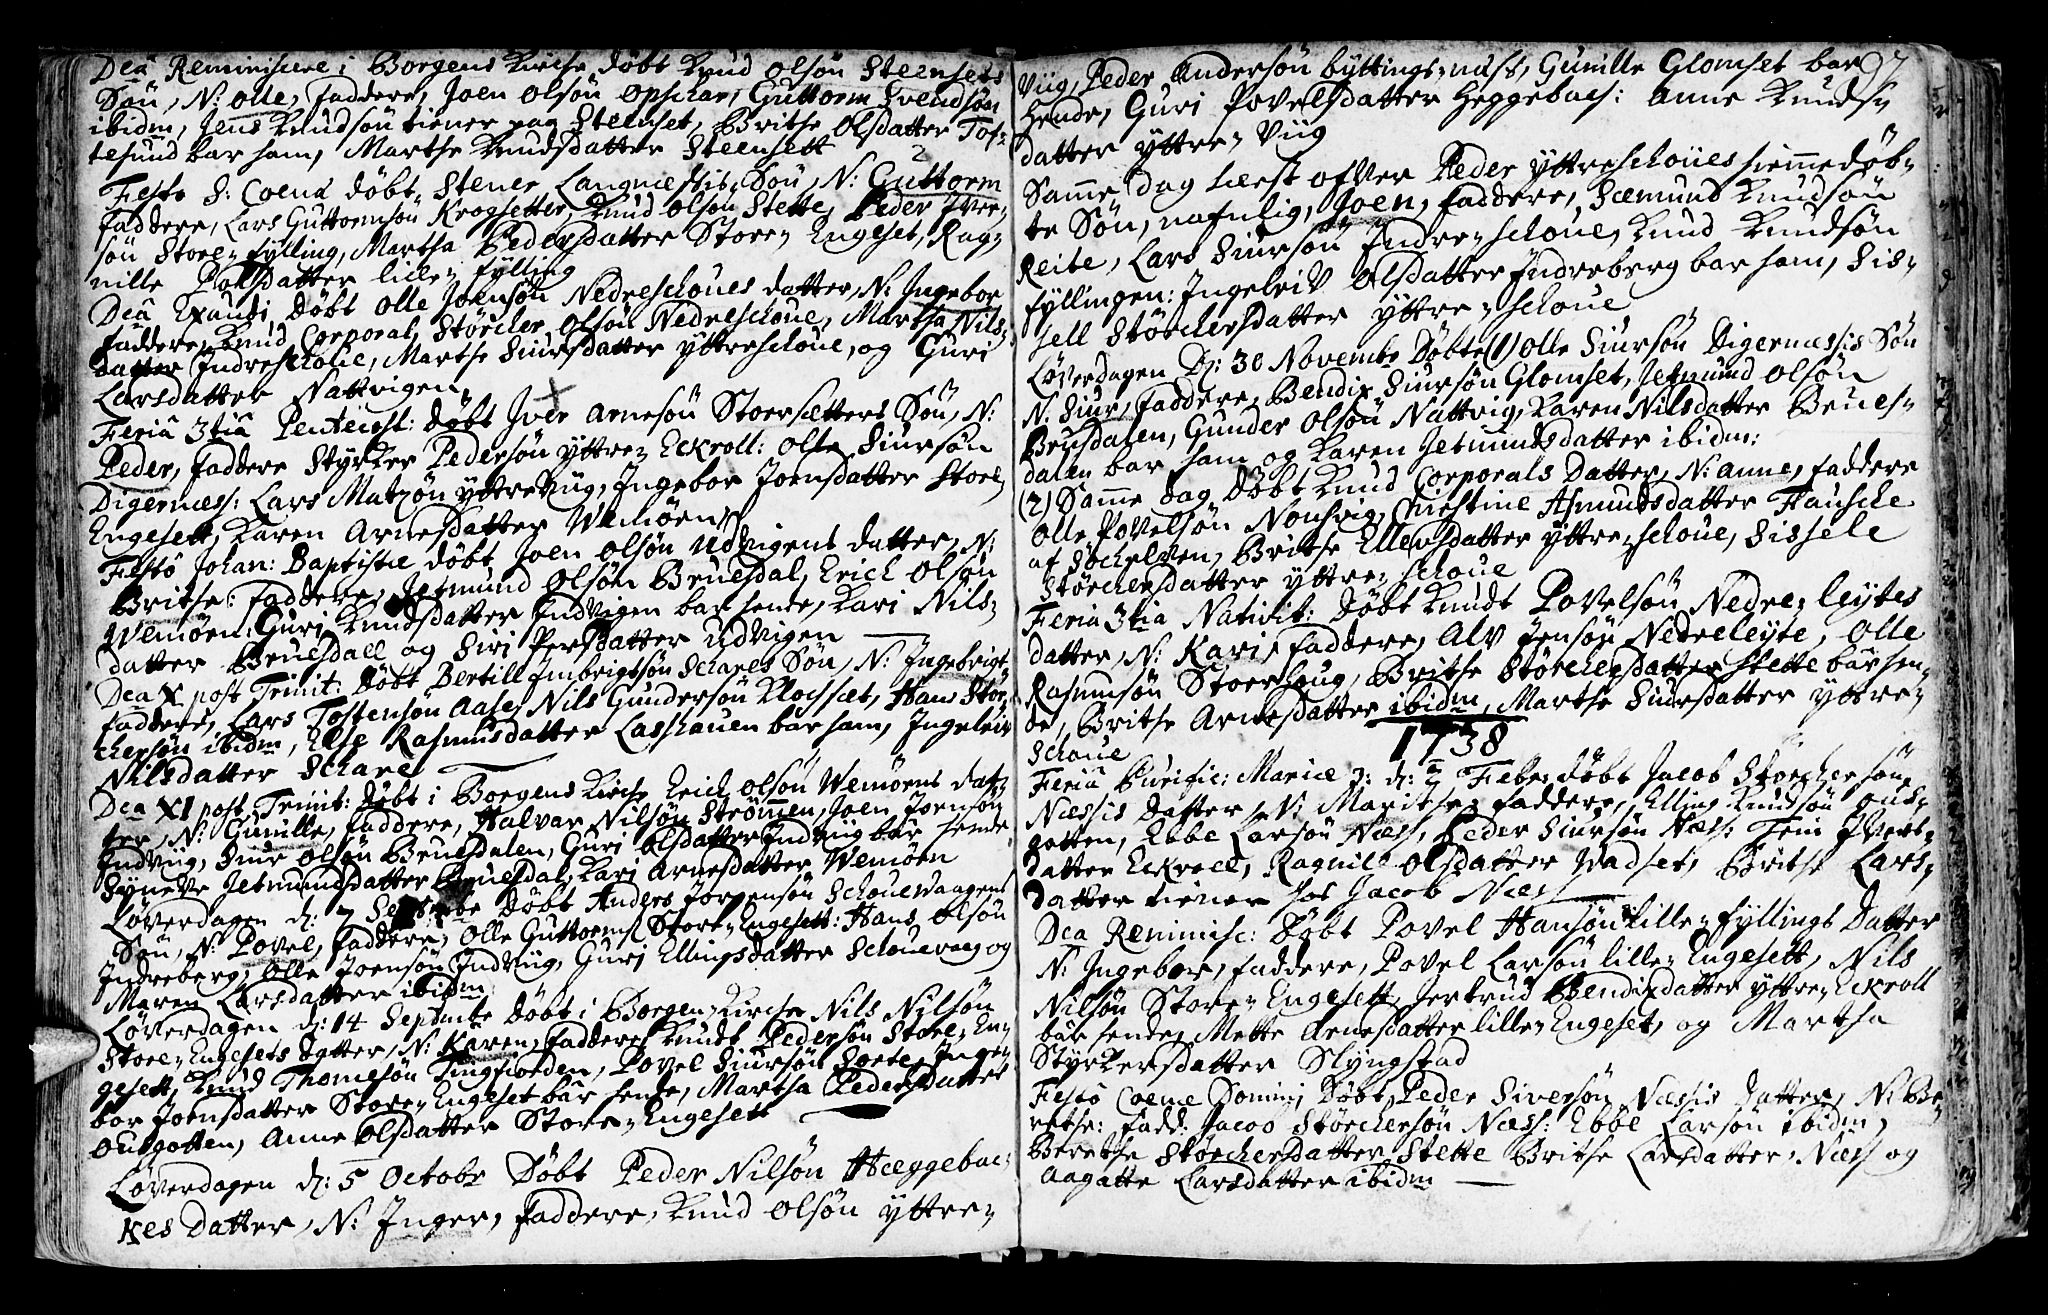 Dca Reminiscere i Borgens Kirche døbt Knud Olsøn Steensets
Søn, N: Olle, Faddere, Joen Olsøn Opskar, Guttorm Svendsøn
ibidm, Jens Knudsøn tiener paa Steenset, Brithe Olsdatter Tos-
tesund bar ham, Marthe Knudsdatter Steensett
Festo S: Coena døbt Stener Langnessis Søn, N: Guttorm
Faddere, Lars Guttormsøn Krogsetter, Knud Olsøn Stette, Peder Iver-
søn Store-Fylling, Martha Pedersdatter Store-Engeset, Rag-
nille Polsdatter lille-Fylling
Dca Exaudi Døbt Olle Joensøn Nedreschoues datter, N: Ingebor
Faddere, Knud Corporal, Størcher Olsøn Nedreschoue, Martha Nils-
datter Indreschoue, Marthe Siursdatter Yttreschoue, og Guri
Larsdatter Nattvigen
Feria 3tia Pentecost: Døbt Iver Arnesøn Stoersætters Søn, N:
Peder, Faddere Styrker Pedersøn Yttre-Eckroll: Olle Siursøn
Digernæss: Lars Matzøn Yttreviig, Ingebor Joensdatter Store-
Engesett, Karen Arnesdatter Wemøen
Festo Johan: Baptistæ døbt Joen Olsøn Udvigens datter, N:
Brithe: Faddere, Jetmund Olsøn Bruesdal, Erich Olsøn
Wemøen: Guri Knudsdatter Indvigen bar hende, Kari Nils-
datter Bruesdall og Siri Persdatter Udvigen
Dca X post Trinit: Døbt Bertill Imbrigtsøn Schares Søn, N: Ingebrigt
Faddere, Lars Tostensøn Aase, Nils Gundersøn Klochsæt, Hans Stør-
chersøn ibidm, Else Rasmusdatter Lasshauen bar ham, Ingeleiv
Nilsdatter Schare
Dca XI post Trinit: Døbt i Borgens Kirche Erich Olsøn Wemøens dat-
ter, N: Gunille, Faddere, Halvar Nilsøn Strømmen, Joen Joensøn
Indviig, Siur Olsøn Bruesdalen, Guri Olsdatter Indviig bar hende
Syneve Jetmundsdatter Bruesdal, Kari Arnesdatter Wemøen
Løverdagen d: 7 Septembe Døbt Anders Jørgensøn Schouevaagens
Søn, N: Povel, Faddere, Olle Guttorms Store-Engesett: Hans Olsøn
Indreberg, Olle Joensøn Indviig, Guri Ellingsdatter Schouevaag og
Maren Larsdatter ibidm
Løverdagen d: 14 Septembe Døbt i Borgen-Kirche Nils Nilsøn
Store-Engesets Datter, N: Karen, Faddere Knudt Pedersøn Store-En-
gesett, Knud Thomesøn Tingfiorden, Povel Siursøn Sorte, Inge-
bor Joensdatter Store-Engeset bar hende, Martha Pedersdatter
Outgotten, Anne Olsdatter Store-Engesett
Løverdagen d: 5 Octobr Døbt Peder Nilsøn Hæggebac-
kes Datter, N: Inger, Faddere, Knud Olsøn Yttre-
97
Viig, Peder Andersøn Byttingsnuss, Gunille Glomset bar
hende, Guri Povelsdatter Heggebac: Anne Knuds-
datter Yttre-Viig
Samme dag Læst ofver Peder Yttreschoues hiemmedøb-
te Søn, nafnlig, Joen, Faddere, Sæmund Knudsøn
Reite, Lars Siursøn Indre-Schoue, Knud Knudsøn
Fyllingen: Ingeleiv Olsdatter Indreberg bar ham, Sis-
sell Størchersdatter Yttre-Schoue
Løverdagen D: 30 Novembe Døbte (1) Olle Siursøn Digernæssis Søn
N: Siur, Faddere, Bendix Siursøn Glomset, Jetmund Olsøn
Brusdalen, Gunder Olsøn Nattvig, Karen Nilsdatter Brues-
dalen bar ham og Karen Jetmundsdatter ibidm:
(2) Samme dag Døbt Knud Corporals Datter, N: Anne, Faddere
Olle Povelsøn Nonsvig, Christine Asmundsdatter Hausche
af Søchelven, Brithe Ellensdatter Yttre-Schoue, Sissele
Størchersdatter Yttre-Schoue
Feria 3tia Nativit: Døbt Knudt Povelsøn Nedre-Leytes
datter, N: Kari, Faddere, Alv Jensøn Nedreleyte, Olle
Rasmusøn Stoerhoug, Brithe Størchersdatter Stette bar hen-
de, Brithe Arnesdatter ibidm, Marthe Siursdatter Yttre-
Schoue
1738
Feria Purific: Mariæ ɔ: d: 2 Febr: døbt Jacob Størchersøn
Næssis Datter, N: Marithe, Faddere, Elling Knudsøn Out-
gotten, Ebbe Larsøn Næss, Peder Siursøn Næss: Trin Ivers-
datter Eckroll, Ragnill Olsdatter Vadset, Brithe Lars-
datter tiener hos Jacob Næs
Dca Reminisc: Døbt Povel Hansøn Lille-Fyllings Datter
N: Ingebor, Faddere, Povel Larsøn lille-Engesett, Nils
Nilsøn Store-Engesett, Jertrud Bendixdatter Yttre-Eckroll
bar hende, Mette Arnesdatter lille-Engeset, og Martha
Styrkersdatter Slyngstad
Festo Coenæ Domini Døbt, Peder Siversøn Næssis Datter, N: Be-
rethe: Fadd: Jacob Størchersøn Næss: Ebbe Larsøn ibidm,
Berethe Størchersdatter Stette Brithe Larsdatter Næss og
Aagatte Larsdatter ibidm